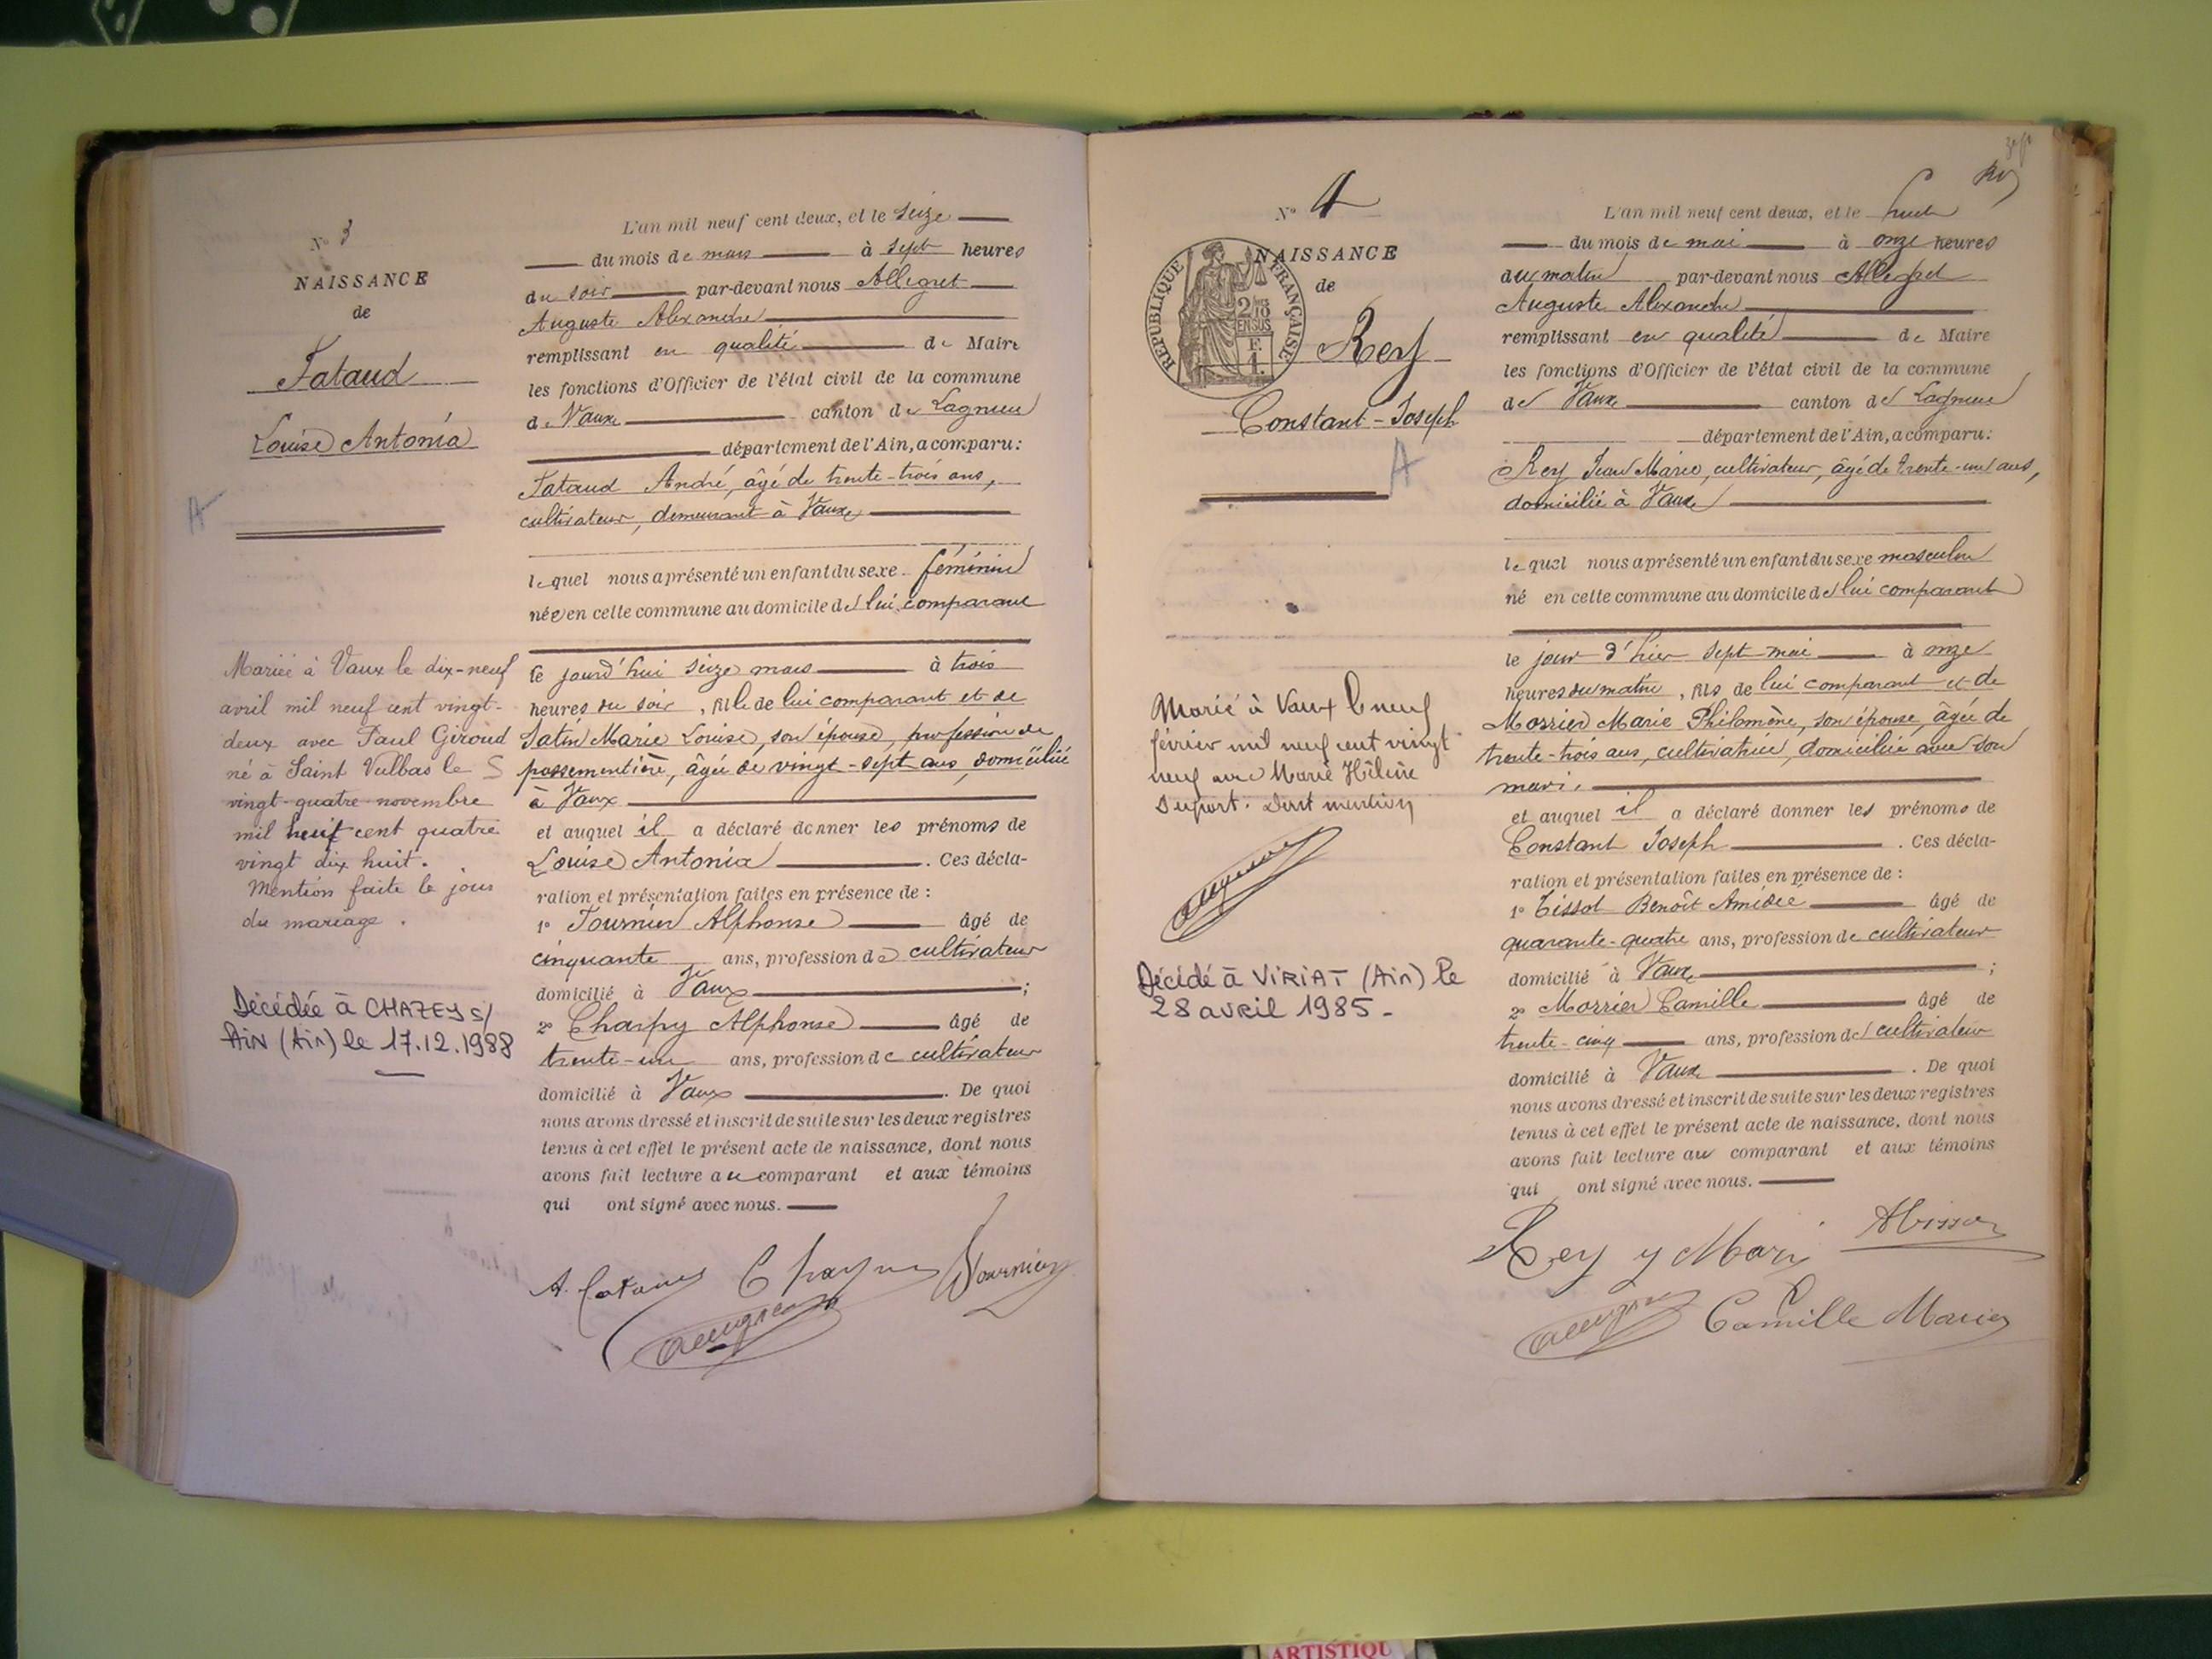 N° 3
NAISSANCE
de
Fataud
Louise Antonia
A
Mariée à Vaux le dix-neuf
avril mil neuf cent vingt-
deux avec Paul Giroud
né à Saint Vulbas le
vingt-quatre novembre
mil huit cent quatre
vingt dix huit.
Mention faite le jour
du mariage.
Décédée à CHAZEY S/
AIN (Ain) le 17.12.1988
L'an mil neuf cent deux, et le seize
du mois de mars à sept heures
du soir par-devant nous Allegret
Auguste Alexandre
remplissant en qualité de Maire
les fonctions d'Officier de l'état civil de la commune
de Vaux canton de Lagnieu
département de l'Ain, a comparu:
Fataud André, âgé de trente-trois ans,
cultivateur, demeurant à Vaux
lequel nous a présenté un enfant du sexe féminin
née en cette commune au domicile de lui comparant
le jourd'hui seize mars à trois
heures du soir, fille de lui comparant et de
Satin Marie Louise, son épouse, profession de
passementière, âgée de vingt-sept ans, domiciliée
à Vaux
et auquel il a déclaré donner les prénoms de
Louise Antonia. Ces décla-
ration et présentation faites en présence de :
1° Tournier Alphonse âgé de
cinquante ans, profession de cultivateur
domicilié à Vaux ;
2° Charpy Alphonse âgé de
trente-un ans, profession de cultivateur
domicilié à Vaux. De quoi
nous avons dressé et inscrit de suite sur les deux registres
tenus à cet effet le présent acte de naissance, dont nous
avons fait lecture au comparant et aux témoins
qui ont signé avec nous.
N° 4
NAISSANCE
de
RÉPUBLIQUE FRANÇAISE
Rey
Constant-Joseph
A
Marié à Vaux le neuf
février mil neuf cent vingt
neuf avec Marie Hélène
Duport. Dont mention
Décédé à VIRIAT (Ain) le
28 avril 1985.-
L'an mil neuf cent deux, et le huit
du mois de mai à onze heures
du matin par-devant nous Allegret
Auguste Alexandre
remplissant en qualité de Maire
les fonctions d'Officier de l'état civil de la commune
de Vaux canton de Lagnieu
département de l'Ain, a comparu:
Rey Jean Marie, cultivateur, âgé de trente-un ans,
domicilié à Vaux
lequel nous a présenté un enfant du sexe masculin
né en cette commune au domicile de lui comparant
le jour d'hier sept mai à onze
heures du matin, fils de lui comparant et de
Morrier Marie Philomène, son épouse, âgée de
trente-trois ans, cultivatrice, domiciliée avec son
mari.
et auquel il a déclaré donner les prénoms de
Constant Joseph. Ces décla-
ration et présentation faites en présence de :
1° Tissot Benoît Amédée âgé de
quarante-quatre ans, profession de cultivateur
domicilié à Vaux ;
2° Morrier Camille âgé de
trente-cinq ans, profession de cultivateur
domicilié à Vaux. De quoi
nous avons dressé et inscrit de suite sur les deux registres
tenus à cet effet le présent acte de naissance, dont nous
avons fait lecture au comparant et aux témoins
qui ont signé avec nous.
Rey
Camille
ARTISTIQU